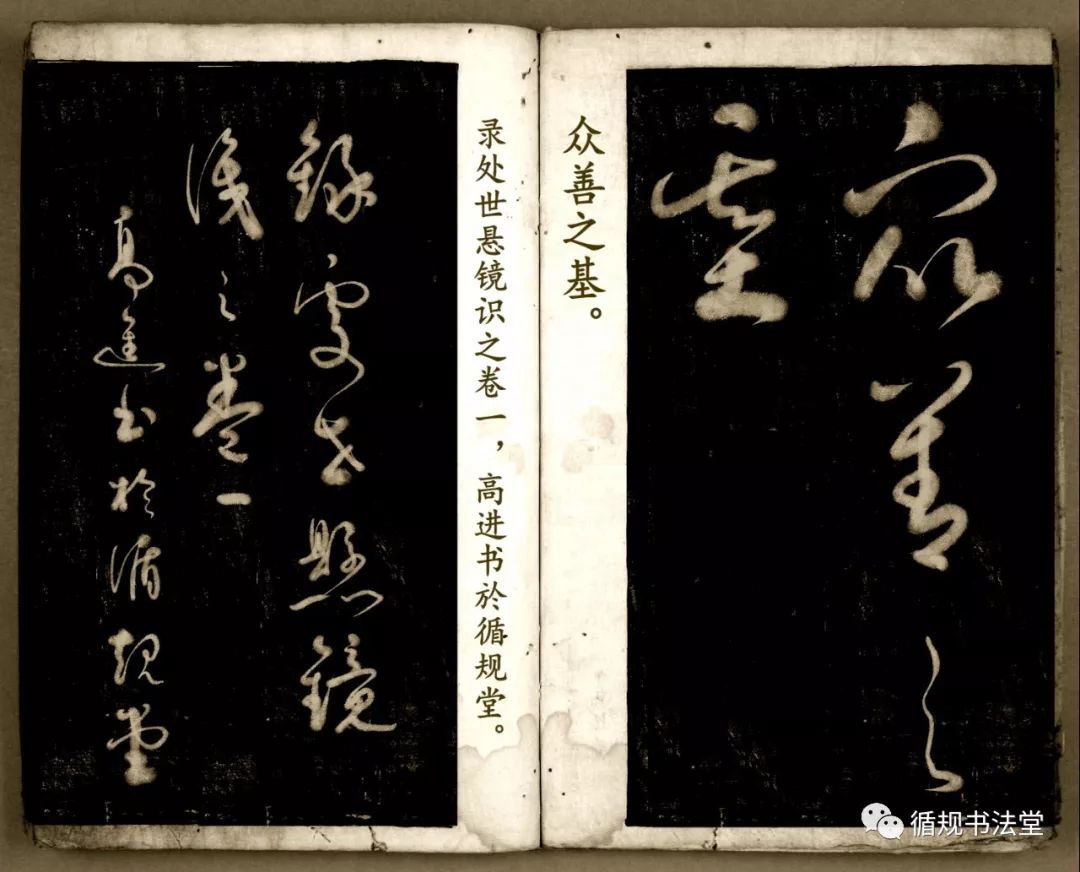 众善之
基
众善之基。
录处世悬镜识之卷一，高进书於循规堂。
錄處世懸鏡
识之卷一
高進书於循规堂
循规书法堂